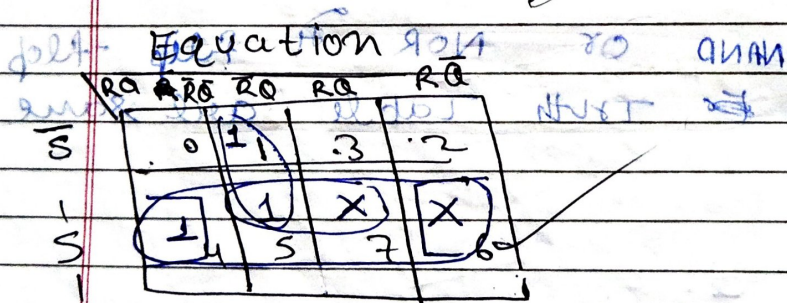 Equation
RQ R̄Q̄ R̄Q RQ RQ̄
S̄ 0 1 1 3 2
S 1 4 1 5 X 7 X 6